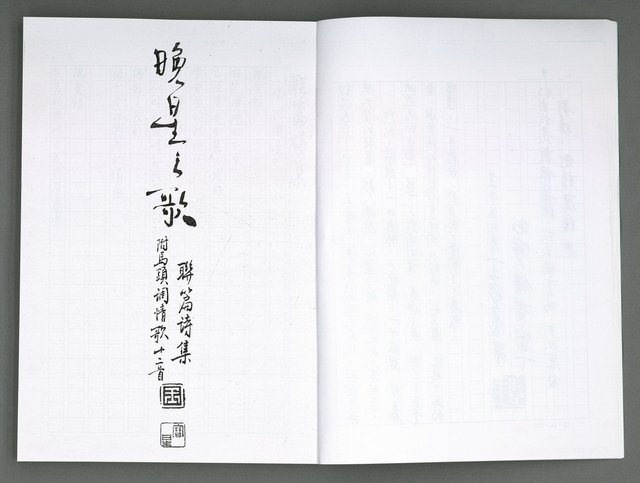 晚星之歌
聯篇诗集
附馬頭调情歌十二首